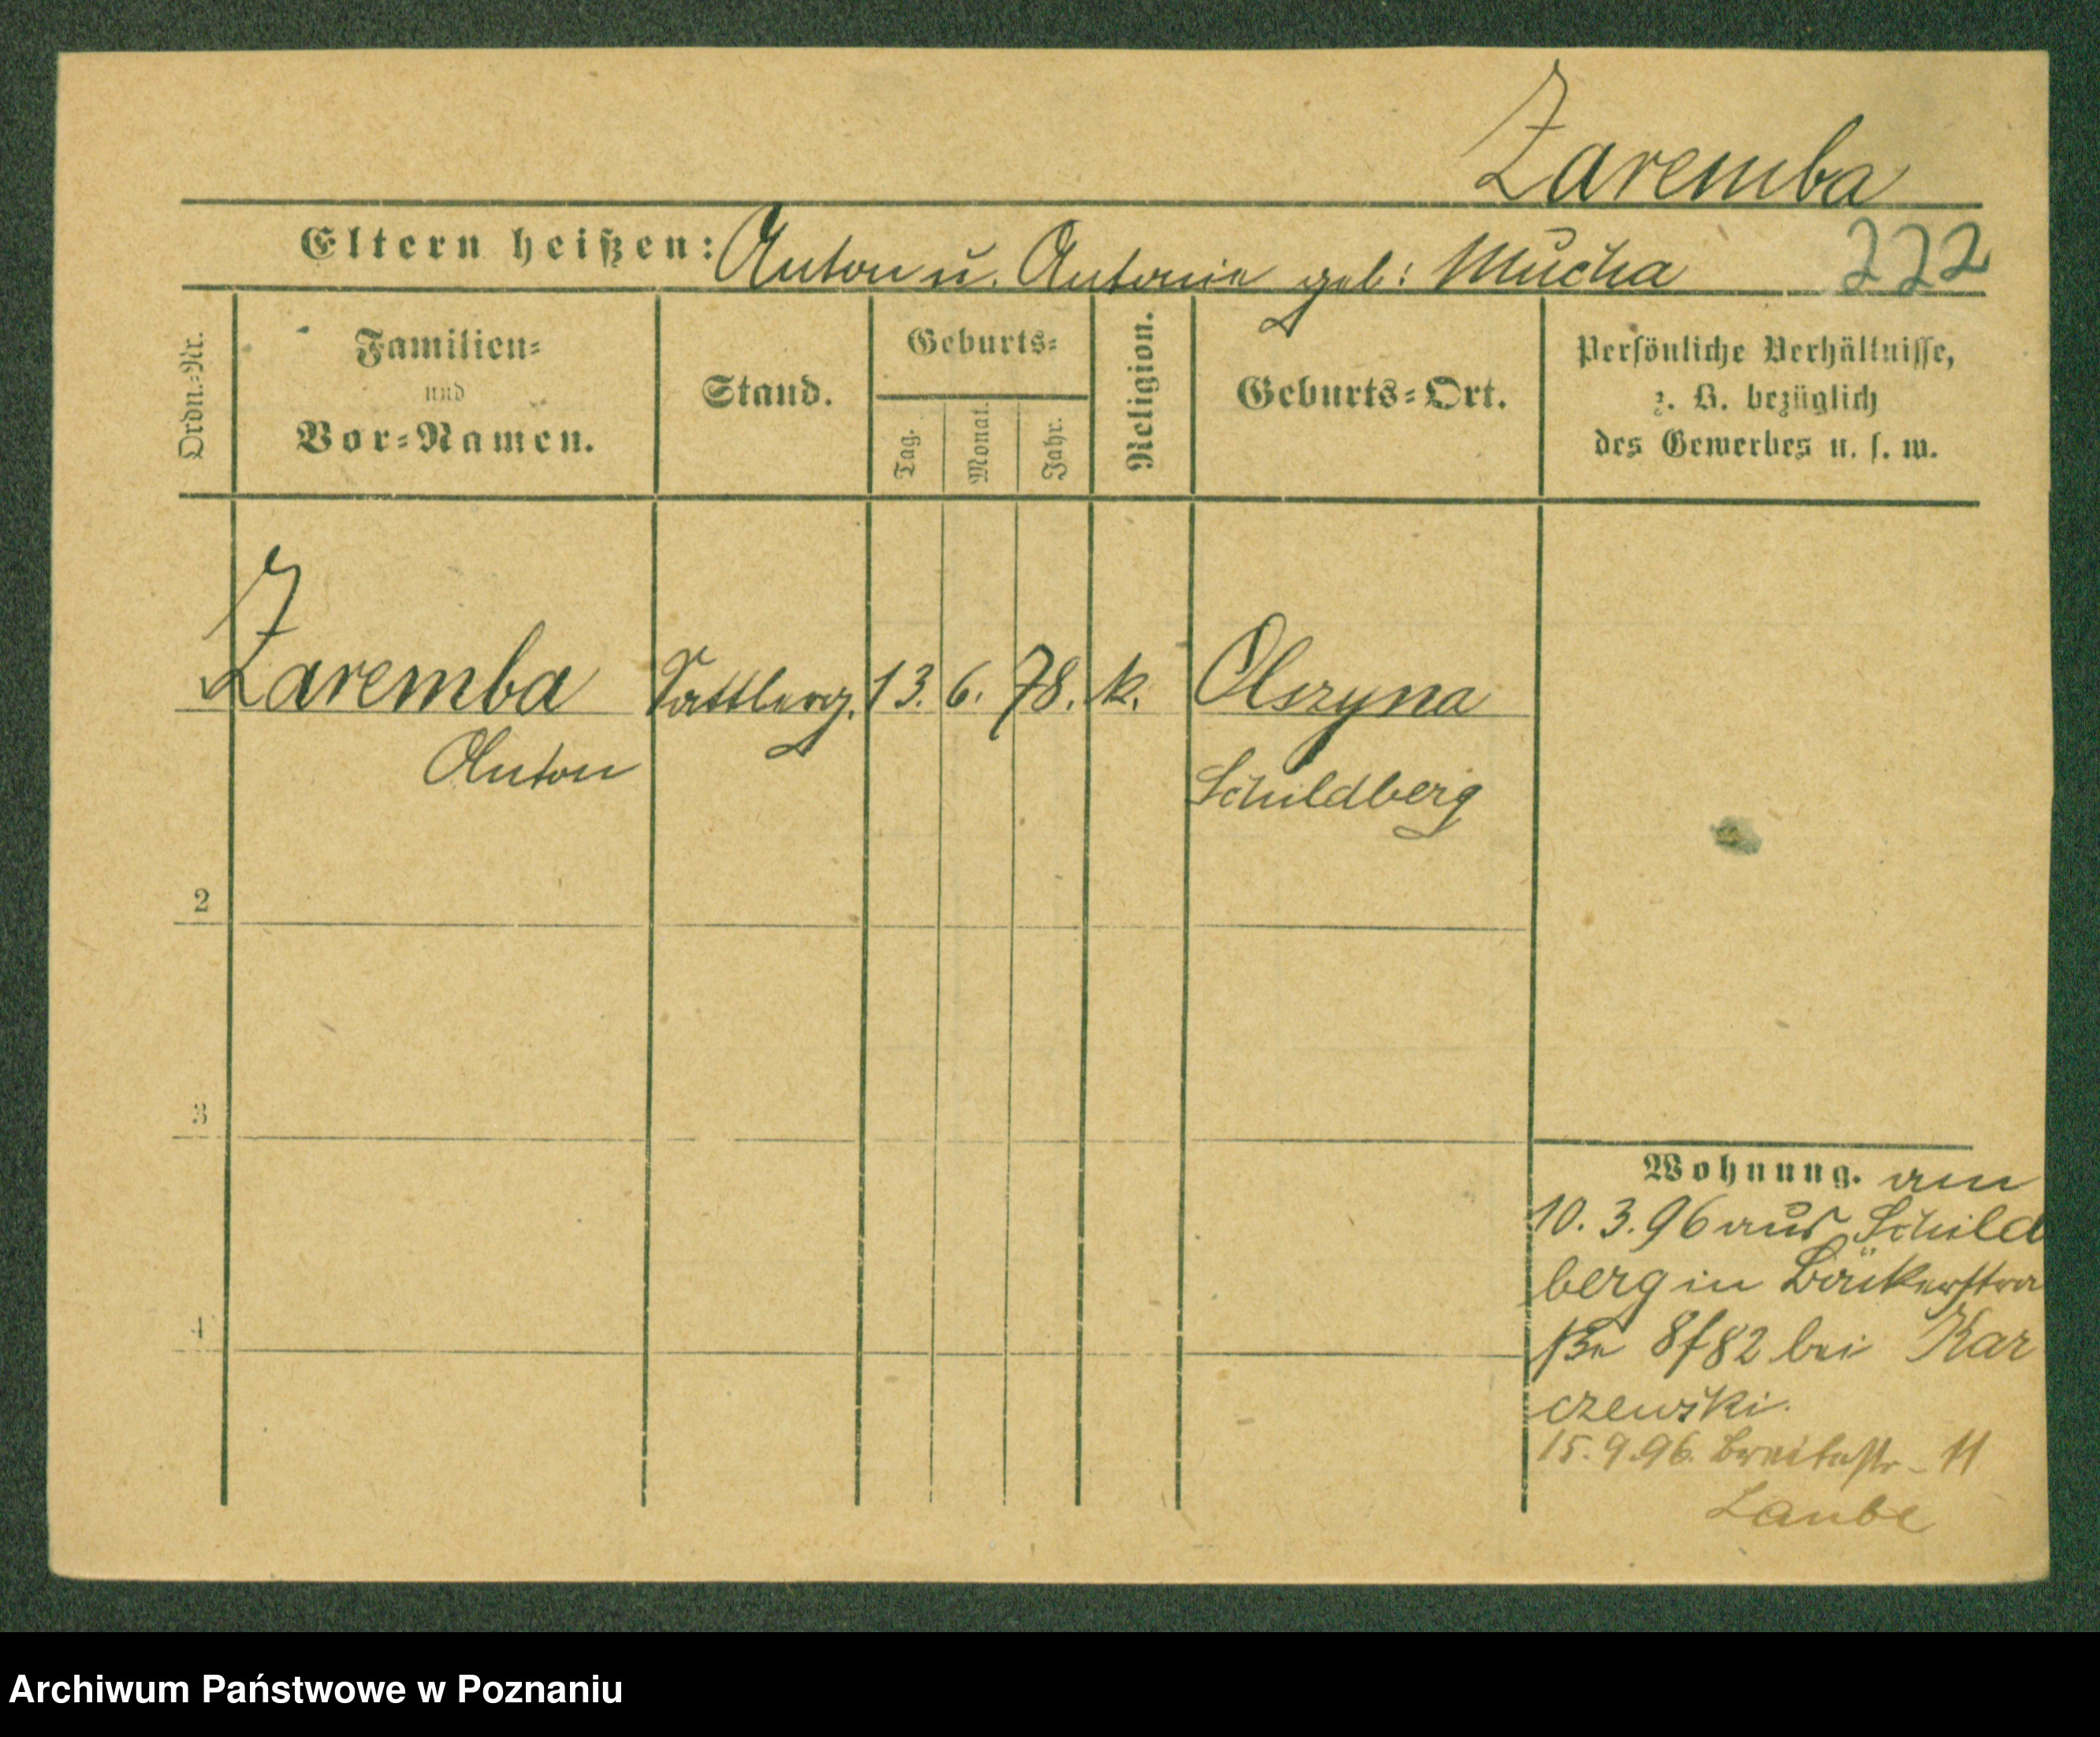 Zaremba
Eltern heißen: Anton u. Antonie geb: Mucha 222
Ordn.-Nr.
Familien-
und
Vor-Namen.
Stand.
Geburts-
Tag.
Monat.
Jahr.
Religion.
Geburts-Ort.
Persönliche Verhältnisse,
z. B. bezüglich
des Gewerbes u. s. w.
Zaremba
Anton
13. 6. 78. k.
Olszyna
Schildberg
2
3
4
Wohnung. am
10. 3. 96 aus Schild
berg in Bäckerstra
ße 8/82 bei Kar
czewski.
15. 9. 96. Breitestr - 11
Laube
Archiwum Państwowe w Poznaniu